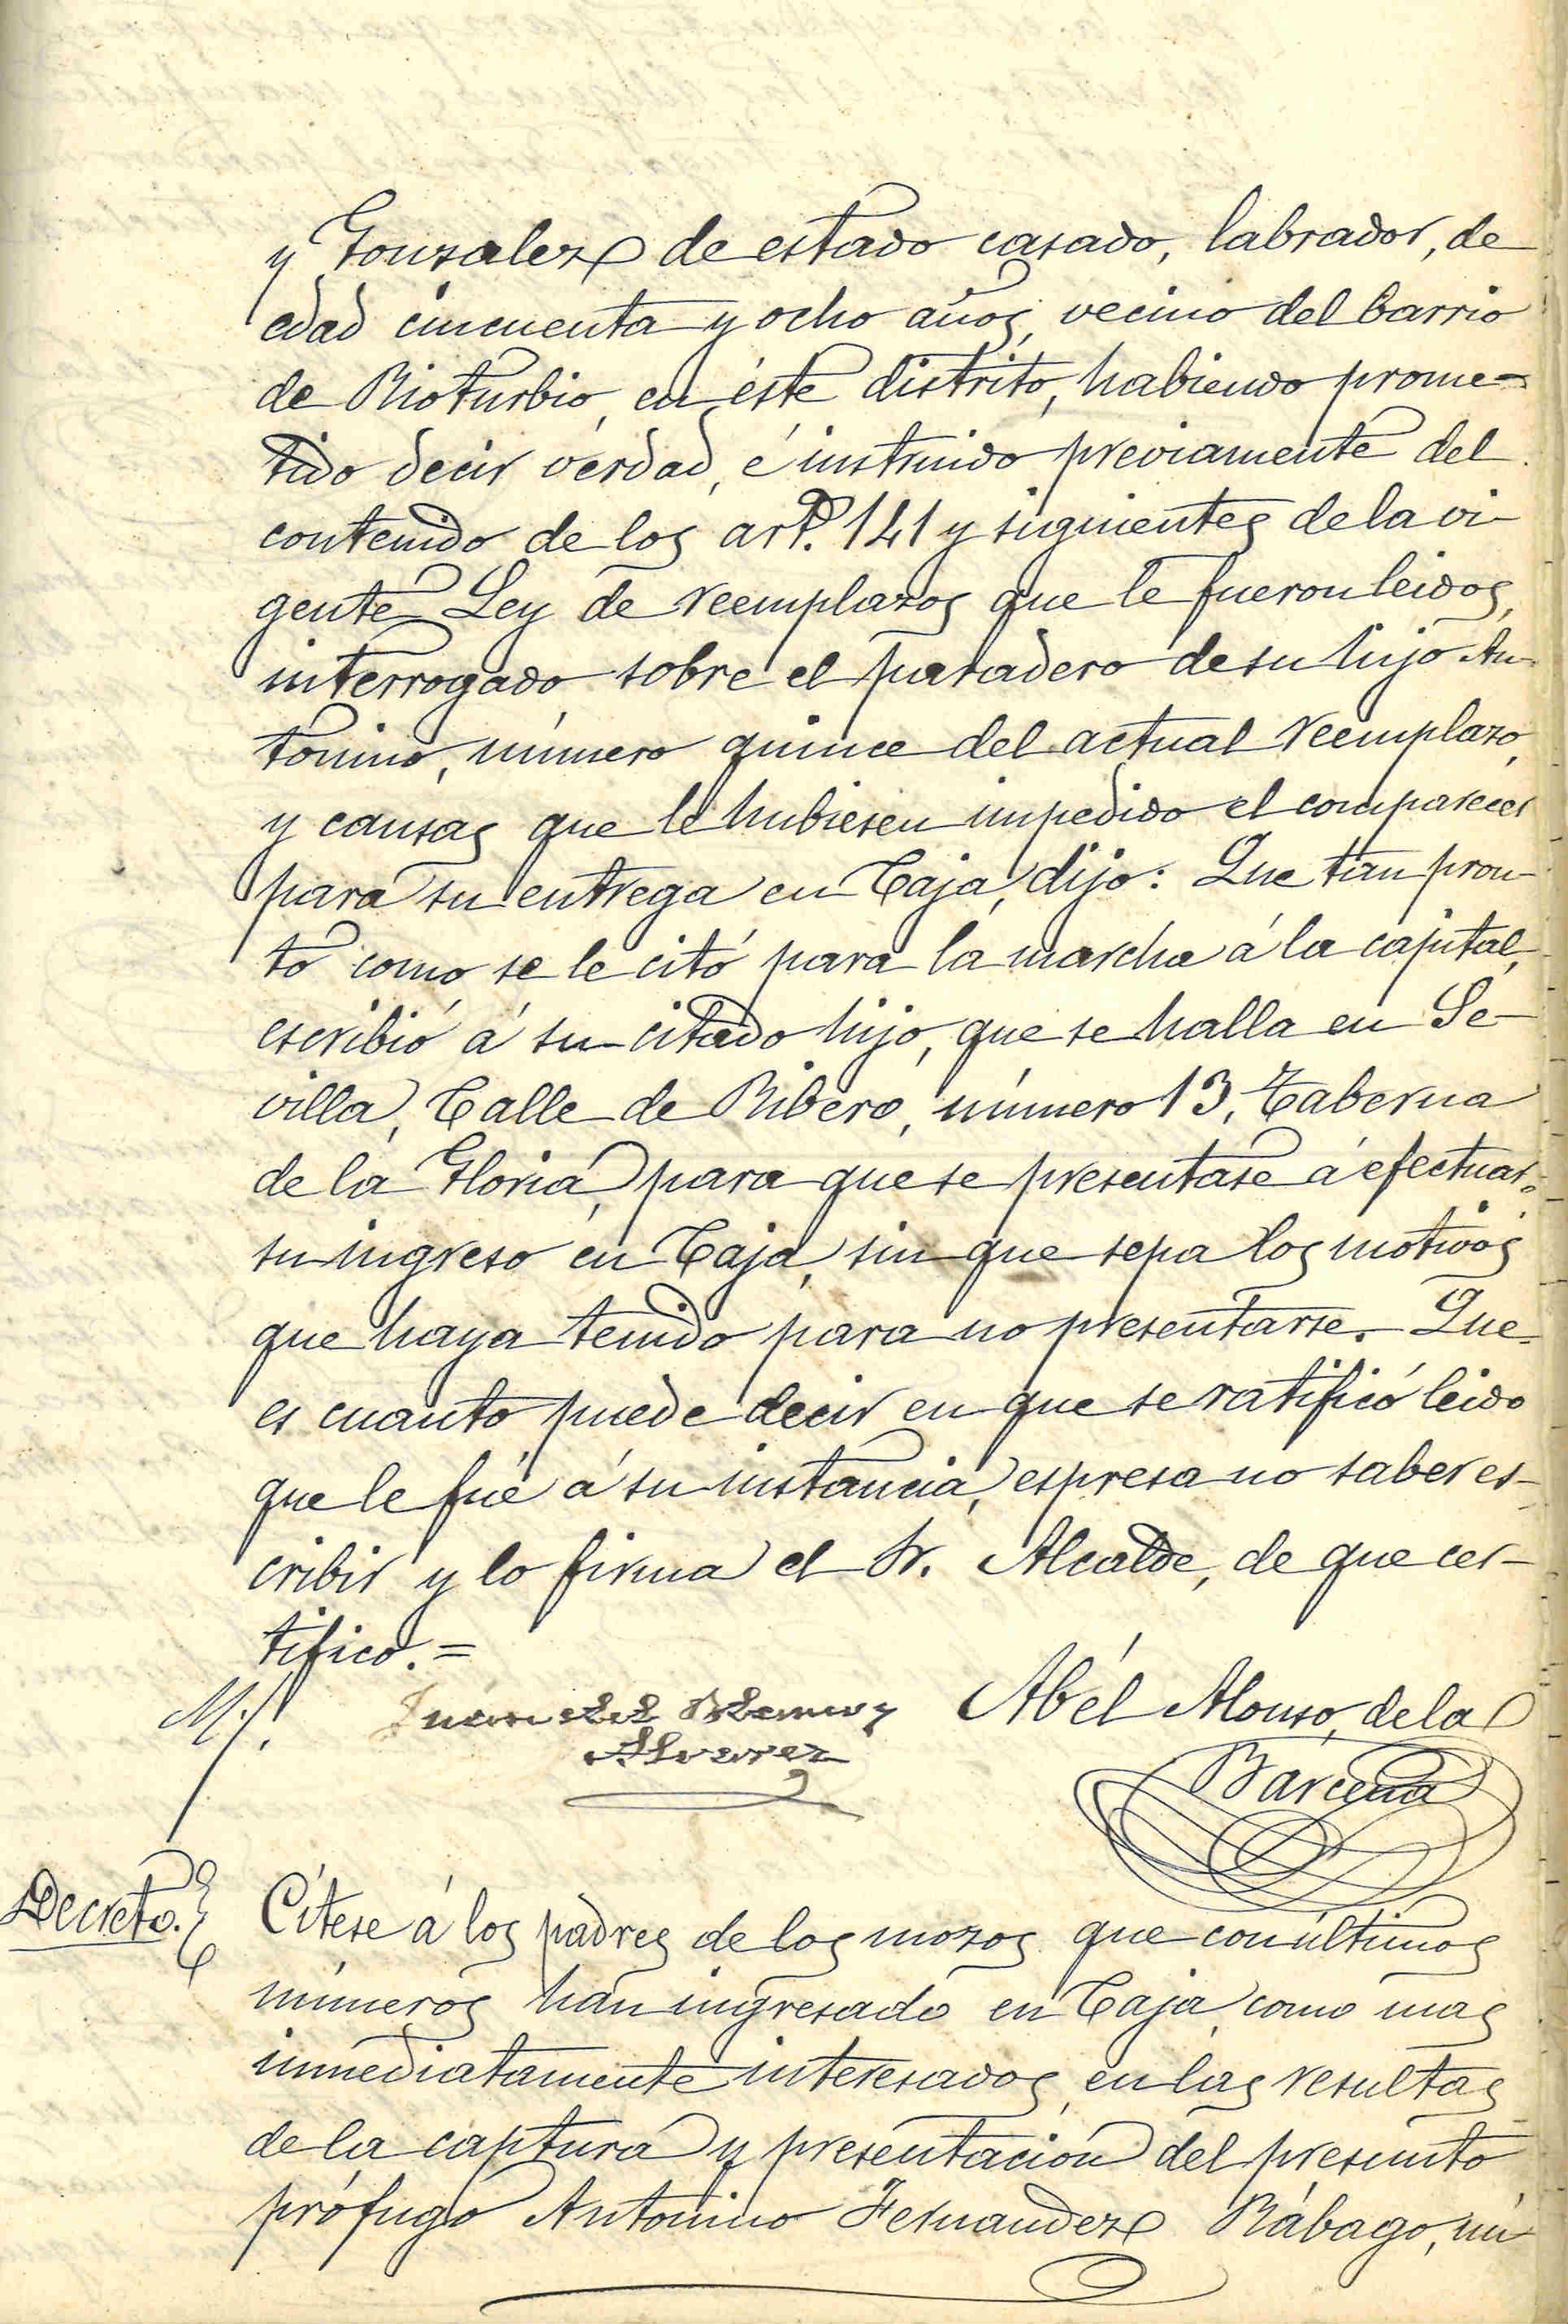 y Gonzalez de estado casado, labrador, de
edad cincuenta y ocho años, vecino del barrio
de Rioturbio, en éste distrito, habiendo prome-
tido decir verdad, é instruido previamente del
contenido de los artº. 141 y siguientes de la vi-
gente Ley de reemplazos que le fueron leidos,
interrogado sobre el paradero de su hijo An-
tonino, número quince del actual reemplazo,
y causas que le hubiesen impedido el comparecer
para su entrega en Caja, dijo: Que tan pron-
to como se le citó para la marcha á la capital,
escribió á su citado hijo, que se halla en Se-
villa, Calle de Ribero, número 13, Taberna
de la Gloria, para que se presentase á efectuar
su ingreso en Caja, sin que sepa los motivos
que haya tenido para no presentarse. Que
es cuanto puede decir en que se ratificó leido
que le fué á su instancia, espresa no saber es-
cribir y lo firma el Sr. Alcalde, de que cer-
tifico. =
Abél Alonso de la
Alvarez
Bárcena
Decreto.
Cítese á los padres de los mozos que con últimos
números han ingresado en Caja, como mas
inmediatamente interesados, en las resultas
de la captura y presentación del presunto
prófugo Antonino Fernandez Rábago, nú-